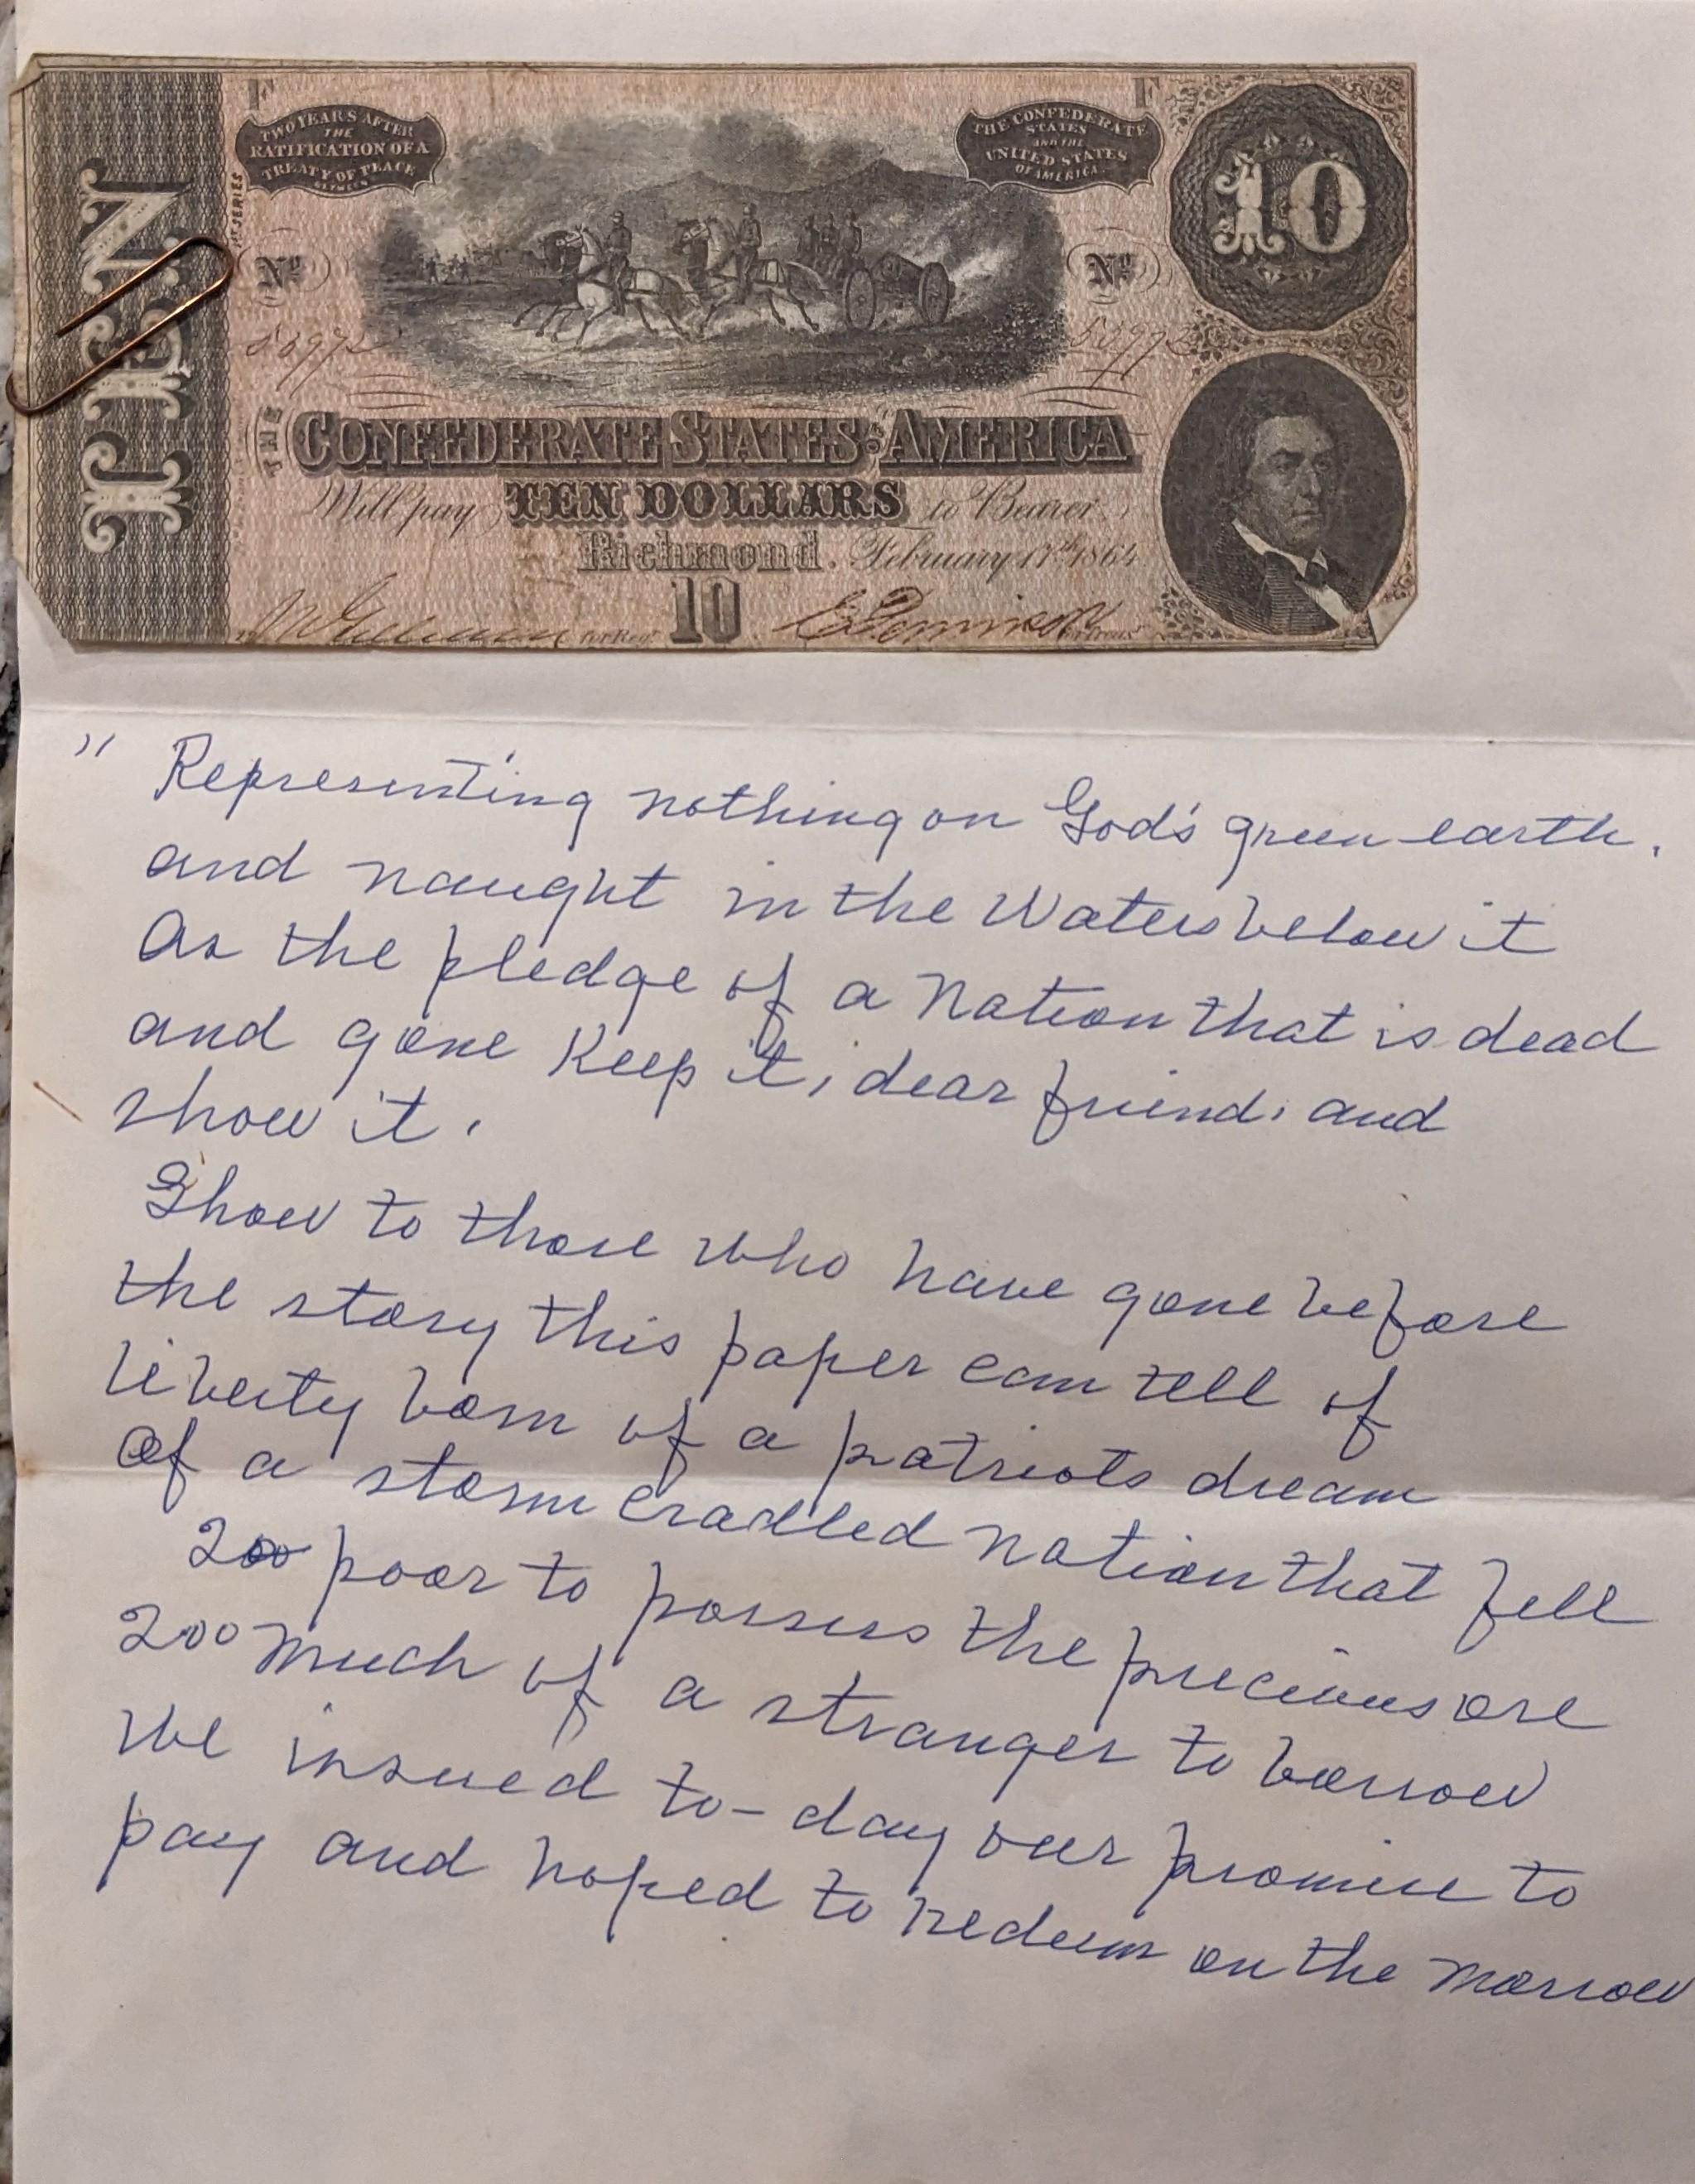 TEN
F
F
TWO YEARS AFTER
THE
RATIFICATION OF A
TREATY OF PEACE
BETWEEN
THE CONFEDERATE
STATES
AND THE
UNITED STATES
OF AMERICA.
10
1st SERIES
No
No
THE
CONFEDERATE STATES OF AMERICA
Will pay TEN DOLLARS to Bearer
Richmond. February 17th 1864
for Regr. 10 for Treasr.
" Representing nothing on God's green earth,
and naught in the Waters below it
As the pledge of a Nation that is dead
and gone Keep it, dear friend, and
show it.
Show to those who have gone before
the story this paper can tell of
liberty born of a patriots dream
Of a storm cradled nation that fell
Too poor to possess the precious ore
Too much of a stranger to borrow
We issued to-day our promise to
pay and hoped to redeem on the morrow